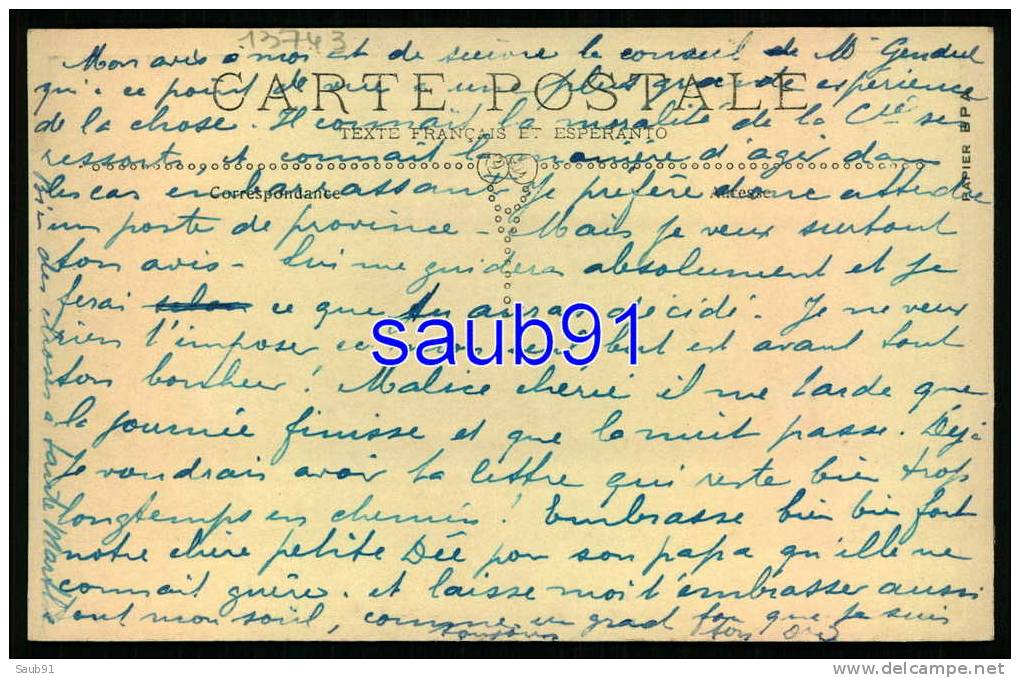 13743
Mon avis à moi est de suivre le conseil de Mr
qui à ce point de vue a une plus grande expérience
CARTE POSTALE
de la chose. Il connaît la moralité de la Cie
TEXTE FRANÇAIS ET ESPÉRANTO
ressort et connaît la manière d'agir dans
Correspondance
Adresse
les cas embarrassants Je préfère donc attendre
un poste de province - Mais je veux surtout
ton avis - Lui me guidera absolument et je
ferai selon ce que tu auras décidé. Je ne veux
rien t'imposer car mon seul but est avant tout
ton bonheur ! Malice chérie il me tarde que
la journée finisse et que la nuit passe. Déjà
Je voudrais avoir ta lettre qui reste bien trop
longtemps en chemin ! Embrasse bien bien fort
notre chère petite Dée pour son papa qu'elle ne
connait guère. et laisse moi t'embrasser aussi
tout mon soûl, comme un grand fou que je suis
toujours ton
Bien des choses à tante
PAPIER BPA
saub91
Saub91
delcampe.net